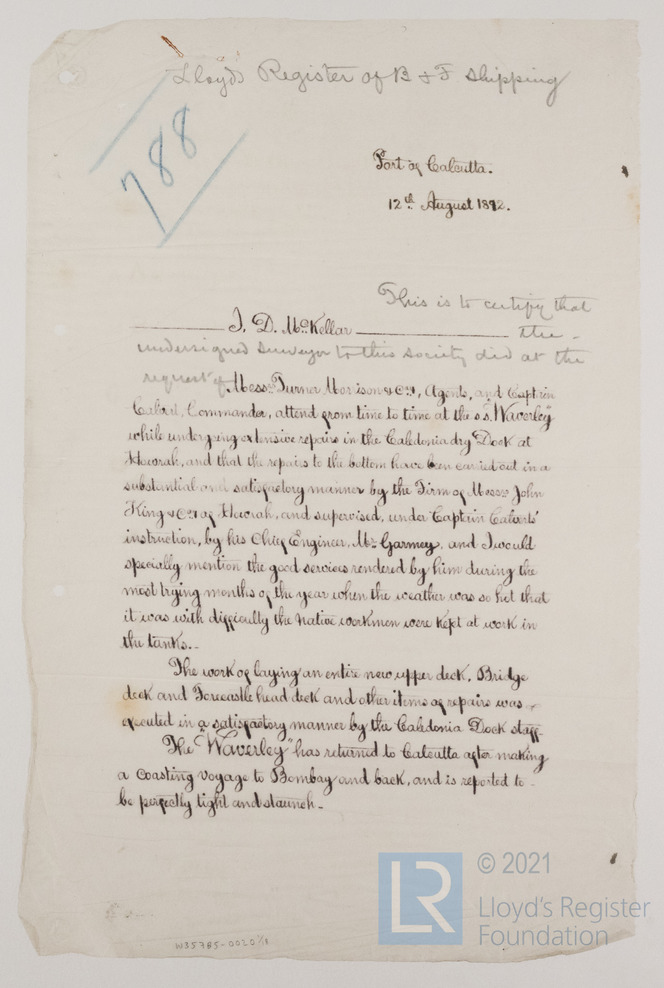 Lloyd's Register of B & F Shipping
788
Port of Calcutta.
12th August 1892.
This is to certify that
J. D. McKellar the
undersigned Surveyor to this Society did at the
request of Messrs Turner Morison & Co., Agents, and Captain
Calvert, Commander, attend from time to time at the s.s. "Waverley"
while undergoing extensive repairs in the Caledonia dry Dock at
Howrah, and that the repairs to the bottom have been carried out in a
substantial and satisfactory manner by the Firm of Messrs John
King & Co. of Howrah, and supervised, under Captain Calverts'
instruction, by his Chief Engineer, Mr. Garmey, and I would
specially mention the good services rendered by him during the
most trying months of the year when the weather was so hot that
it was with difficulty the native workmen were kept at work in
the tanks.
The work of laying an entire new upper deck, Bridge
deck and Forecastle head deck and other items of repairs was
executed in a satisfactory manner by the Caledonia Dock staff.
The "Waverley" has returned to Calcutta after making
a coasting voyage to Bombay and back, and is reported to
be perfectly tight and staunch.
W35785-0020 1/2
LR
© 2021
Lloyd's Register
Foundation